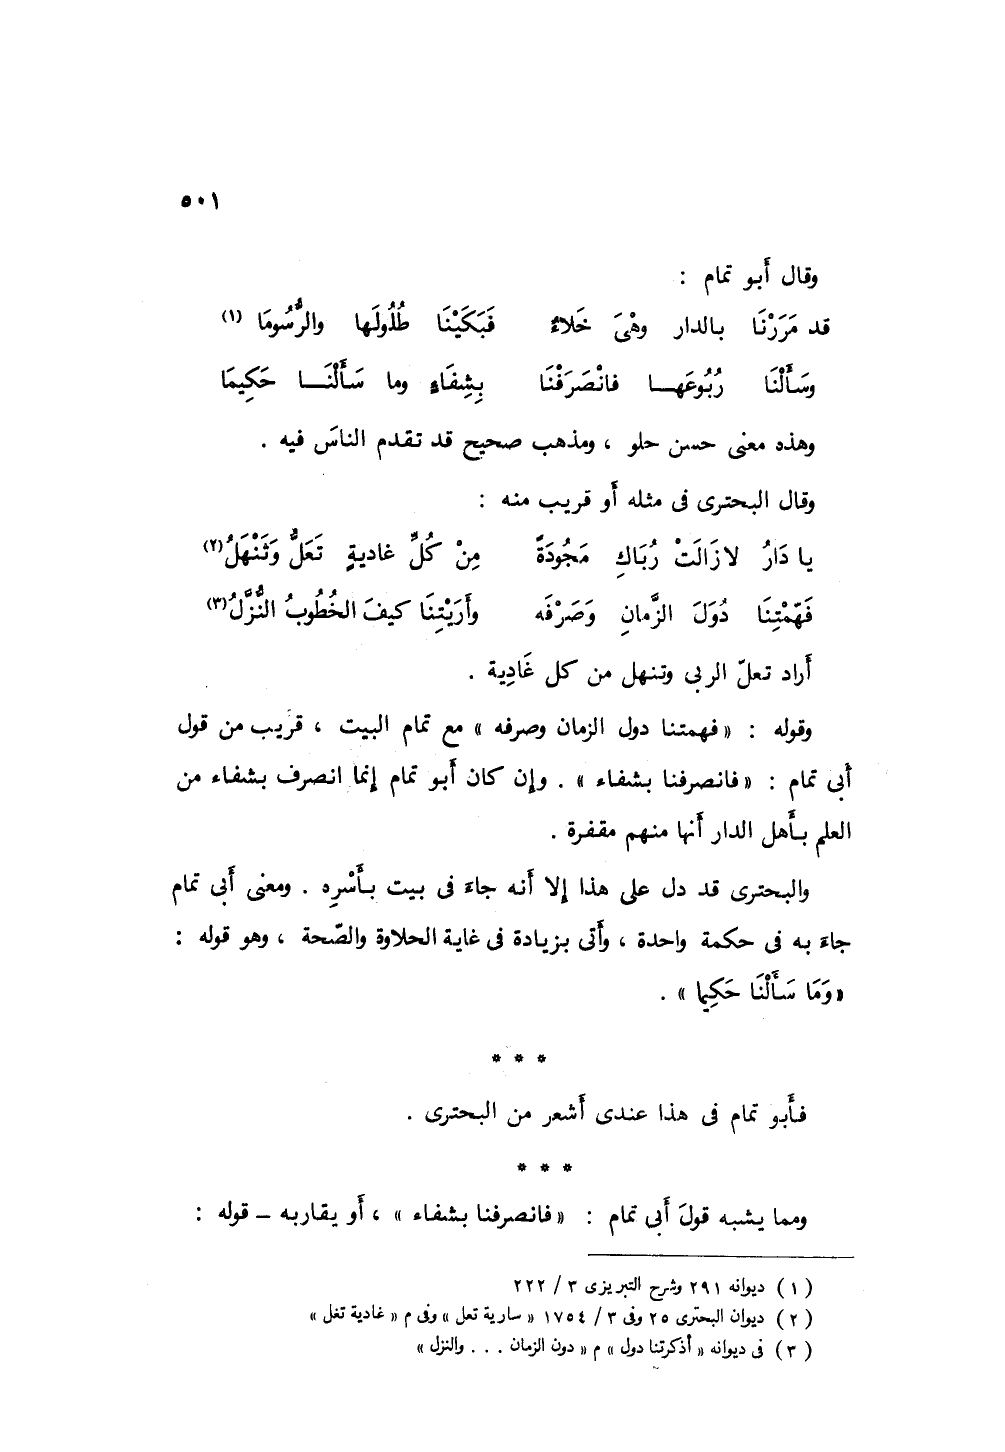 ٥٠١
وقال أَبو تمام :
قد مَرَرْنَا بالدار وهْىَ خَلاءٌ فَبَكَيْنَا طُلُولَها والرُّسُومَا (١)
وسَأَلْنَا رُبُوعَهـا فانْصَرَفْنَا بِشِفَاءٍ وما سَأَلْنَـا حَكِيمَا
وهذه معنى حسن حلو ، ومذهب صحيح قد تقدم الناسَ فيه .
وقال البحترى فى مثله أَو قريب منه :
يا دَارُ لا زَالَتْ رُبَاكِ مَجُودَةً مِنْ كُلِّ غاديةٍ تَعَلُّ وَتَنْهَلُ(٢)
فَهّمْتِنَا دُوَلَ الزَّمانِ وَصَرْفَه وأَرَيْتِنَا كيفَ الخُطُوبُ النُّزَّلُ(٣)
أَراد تعلّ الربى وتنهل من كل غَادِية .
وقوله : « فهمتنا دول الزمان وصرفه » مع تمام البيت ، قريب من قول
أَبى تمام : « فانصرفنا بشفاء » . وإن كان أَبو تمام إنما انصرف بشفاء من
العلم بأَهل الدار أَنها منهم مقفرة .
والبحترى قد دل على هذا إلا أَنه جاءَ فى بيت بأَسْرِه . ومعنى أَبى تمام
جاءَ به فى حكمة واحدة ، وأَتى بزيادة فى غاية الحلاوة والصّحة ، وهو قوله :
« وَمَا سَأَلْنَا حَكِيما » .
* * *
فأَبو تمام فى هذا عندى أَشعر من البحترى .
* * *
ومما يشبه قولَ أَبى تمام : « فانصرفنا بشفاء » ، أَو يقاربه – قوله :
( ١ ) ديوانه ٢٩١ وشرح التبريزى ٣ / ٢٢٢
( ٢ ) ديوان البحترى ٢٥ وفى ٣ / ١٧٥٤ « سارية تعل » وفى م « غادية تغل »
( ٣ ) فى ديوانه « أذكرتنا دول » م « دون الزمان . . . والنزل »